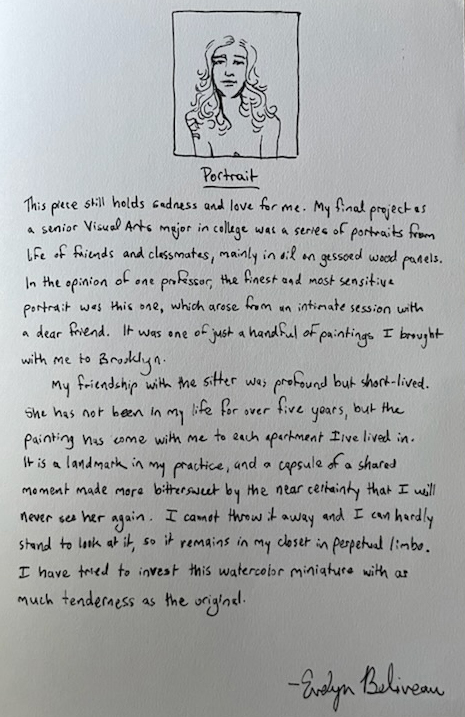 Portrait
This piece still holds sadness and love for me. My final project as
a senior Visual Arts major in college was a series of portraits from
life of friends and classmates, mainly in oil on gessoed wood panels.
In the opinion of one professor, the finest and most sensitive
portrait was this one, which arose from an intimate session with
a dear friend. It was one of just a handful of paintings I brought
with me to Brooklyn.
My friendship with the sitter was profound but short-lived.
She has not been in my life for over five years, but the
painting has come with me to each apartment I've lived in.
It is a landmark in my practice, and a capsule of a shared
moment made more bittersweet by the near certainty that I will
never see her again. I cannot throw it away and I can hardly
stand to look at it, so it remains in my closet in perpetual limbo.
I have tried to invest this watercolor miniature with as
much tenderness as the original.
-Evelyn Beliveau